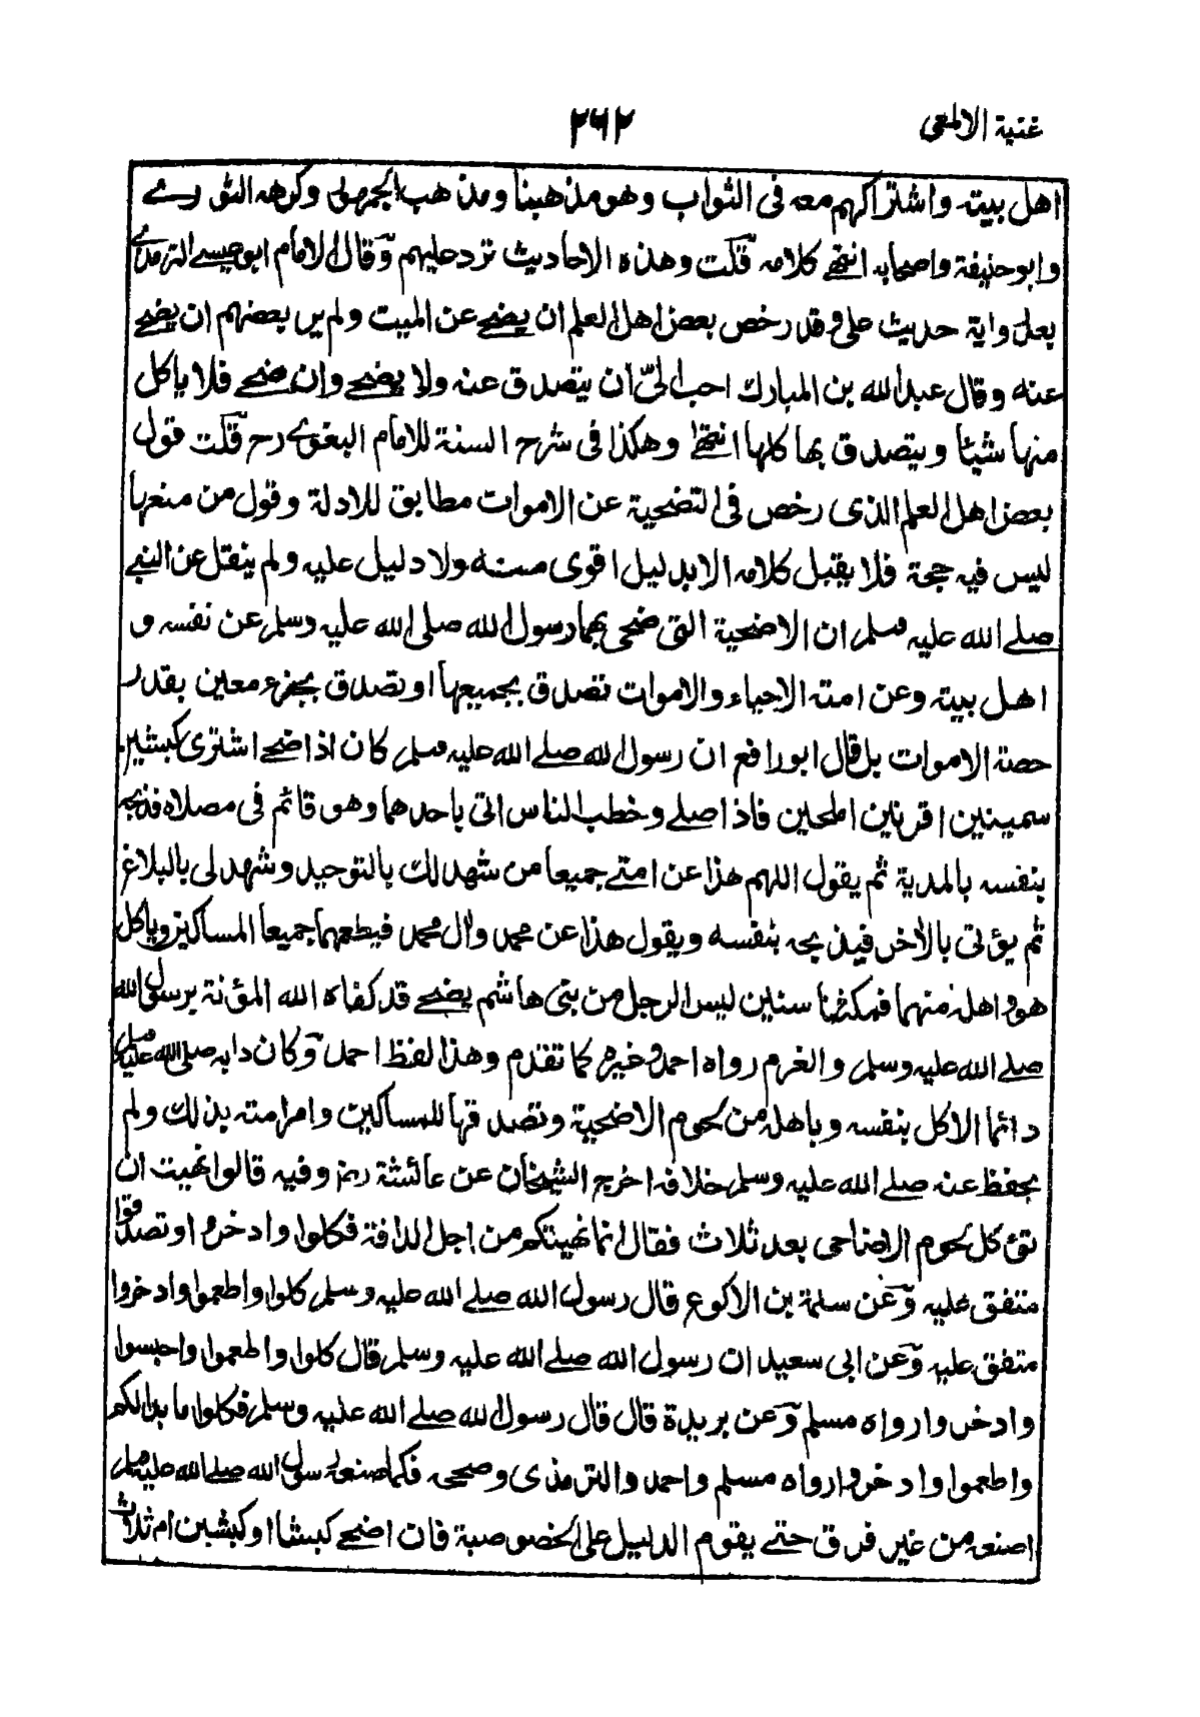 غنية الالمعى
۲۶۲
اهل بيته واشتراكهم معه فى الثواب وهو مذهبنا ومذهب الجمهور وكرهه الثورے
وابو حنيفة واصحابه انتهے كلامه قلت وهذه الاحاديث ترد عليهم وقال الامام ابو عيسے الترمذے
بعد رواية حديث علی وقد رخص بعض اهل العلم ان يضحے عن الميت ولم ير بعضهم ان يضحے
عنه وقال عبد الله بن المبارك احب الىّ ان يتصدق عنه ولا يضحے وان ضحے فلا ياكل
منها شيئا ويتصدق بها كلها انتهے وهكذا فى شرح السنة للامام البغوے رح قلت قول
بعض اهل العلم الذى رخص فى التضحية عن الاموات مطابق للادلة وقول من منعها
ليس فيه حجة فلا يقبل كلامه الا بدليل اقوى منه ولا دليل عليه ولم ينقل عن النبے
صلے الله عليه وسلم ان الاضحية التى ضحى بها رسول الله صلى الله عليه وسلم عن نفسه و
اهل بيته وعن امته الاحياء والاموات تصدق بجميعها او تصدق بجزء معين بقدر
حصة الاموات بل قال ابو رافع ان رسول الله صلے الله عليه وسلم كان اذا ضحے اشترى كبشين
سمينين اقرنين املحين فاذا صلے وخطب الناس اتى باحدهما وهو قائم فى مصلاه فذبحه
بنفسه بالمدية ثم يقول اللهم هذا عن امتے جميعا من شهد لك بالتوحيد وشهد لى بالبلاغ
ثم يؤتى بالاخر فيذبحه بنفسه ويقول هذا عن محمد وال محمد فيطعمهما جميعا المساكين وياكل
هو واهله منهما فمكثنا سنين ليس الرجل من بنى هاشم يضحے قد كفاه الله المؤنة برسول الله
صلے الله عليه وسلم والغرم رواه احمد وغيره كما تقدم وهذا لفظ احمد وكان دابه صلى الله عليه وسلم
دائما الاكل بنفسه وباهله من لحوم الاضحية وتصدقها للمساكين وامر امته بذلك ولم
يحفظ عنه صلے الله عليه وسلم خلافه اخرج الشيخان عن عائشة رض وفيه قالوا نهيت ان
تؤكل لحوم الاضاحى بعد ثلاث فقال انما نهيتكم من اجل الدافة فكلوا وادخروا وتصدقوا
متفق عليه وعن سلمة بن الاكوع قال رسول الله صلے الله عليه وسلم كلوا واطعموا وادخروا
متفق عليه وعن ابى سعيد ان رسول الله صلے الله عليه وسلم قال كلوا واطعموا واحبسوا
وادخروا رواه مسلم وعن بريدة قال قال رسول الله صلے الله عليه وسلم فكلوا ما بدا لكم
واطعموا وادخروا رواه مسلم واحمد والترمذى وصححه فكما صنع رسول الله صلے الله عليه وسلم
اصنع من غير فرق حتے يقوم الدليل على الخصوصية فان اضحے كبشا او كبشين ام ثلاث